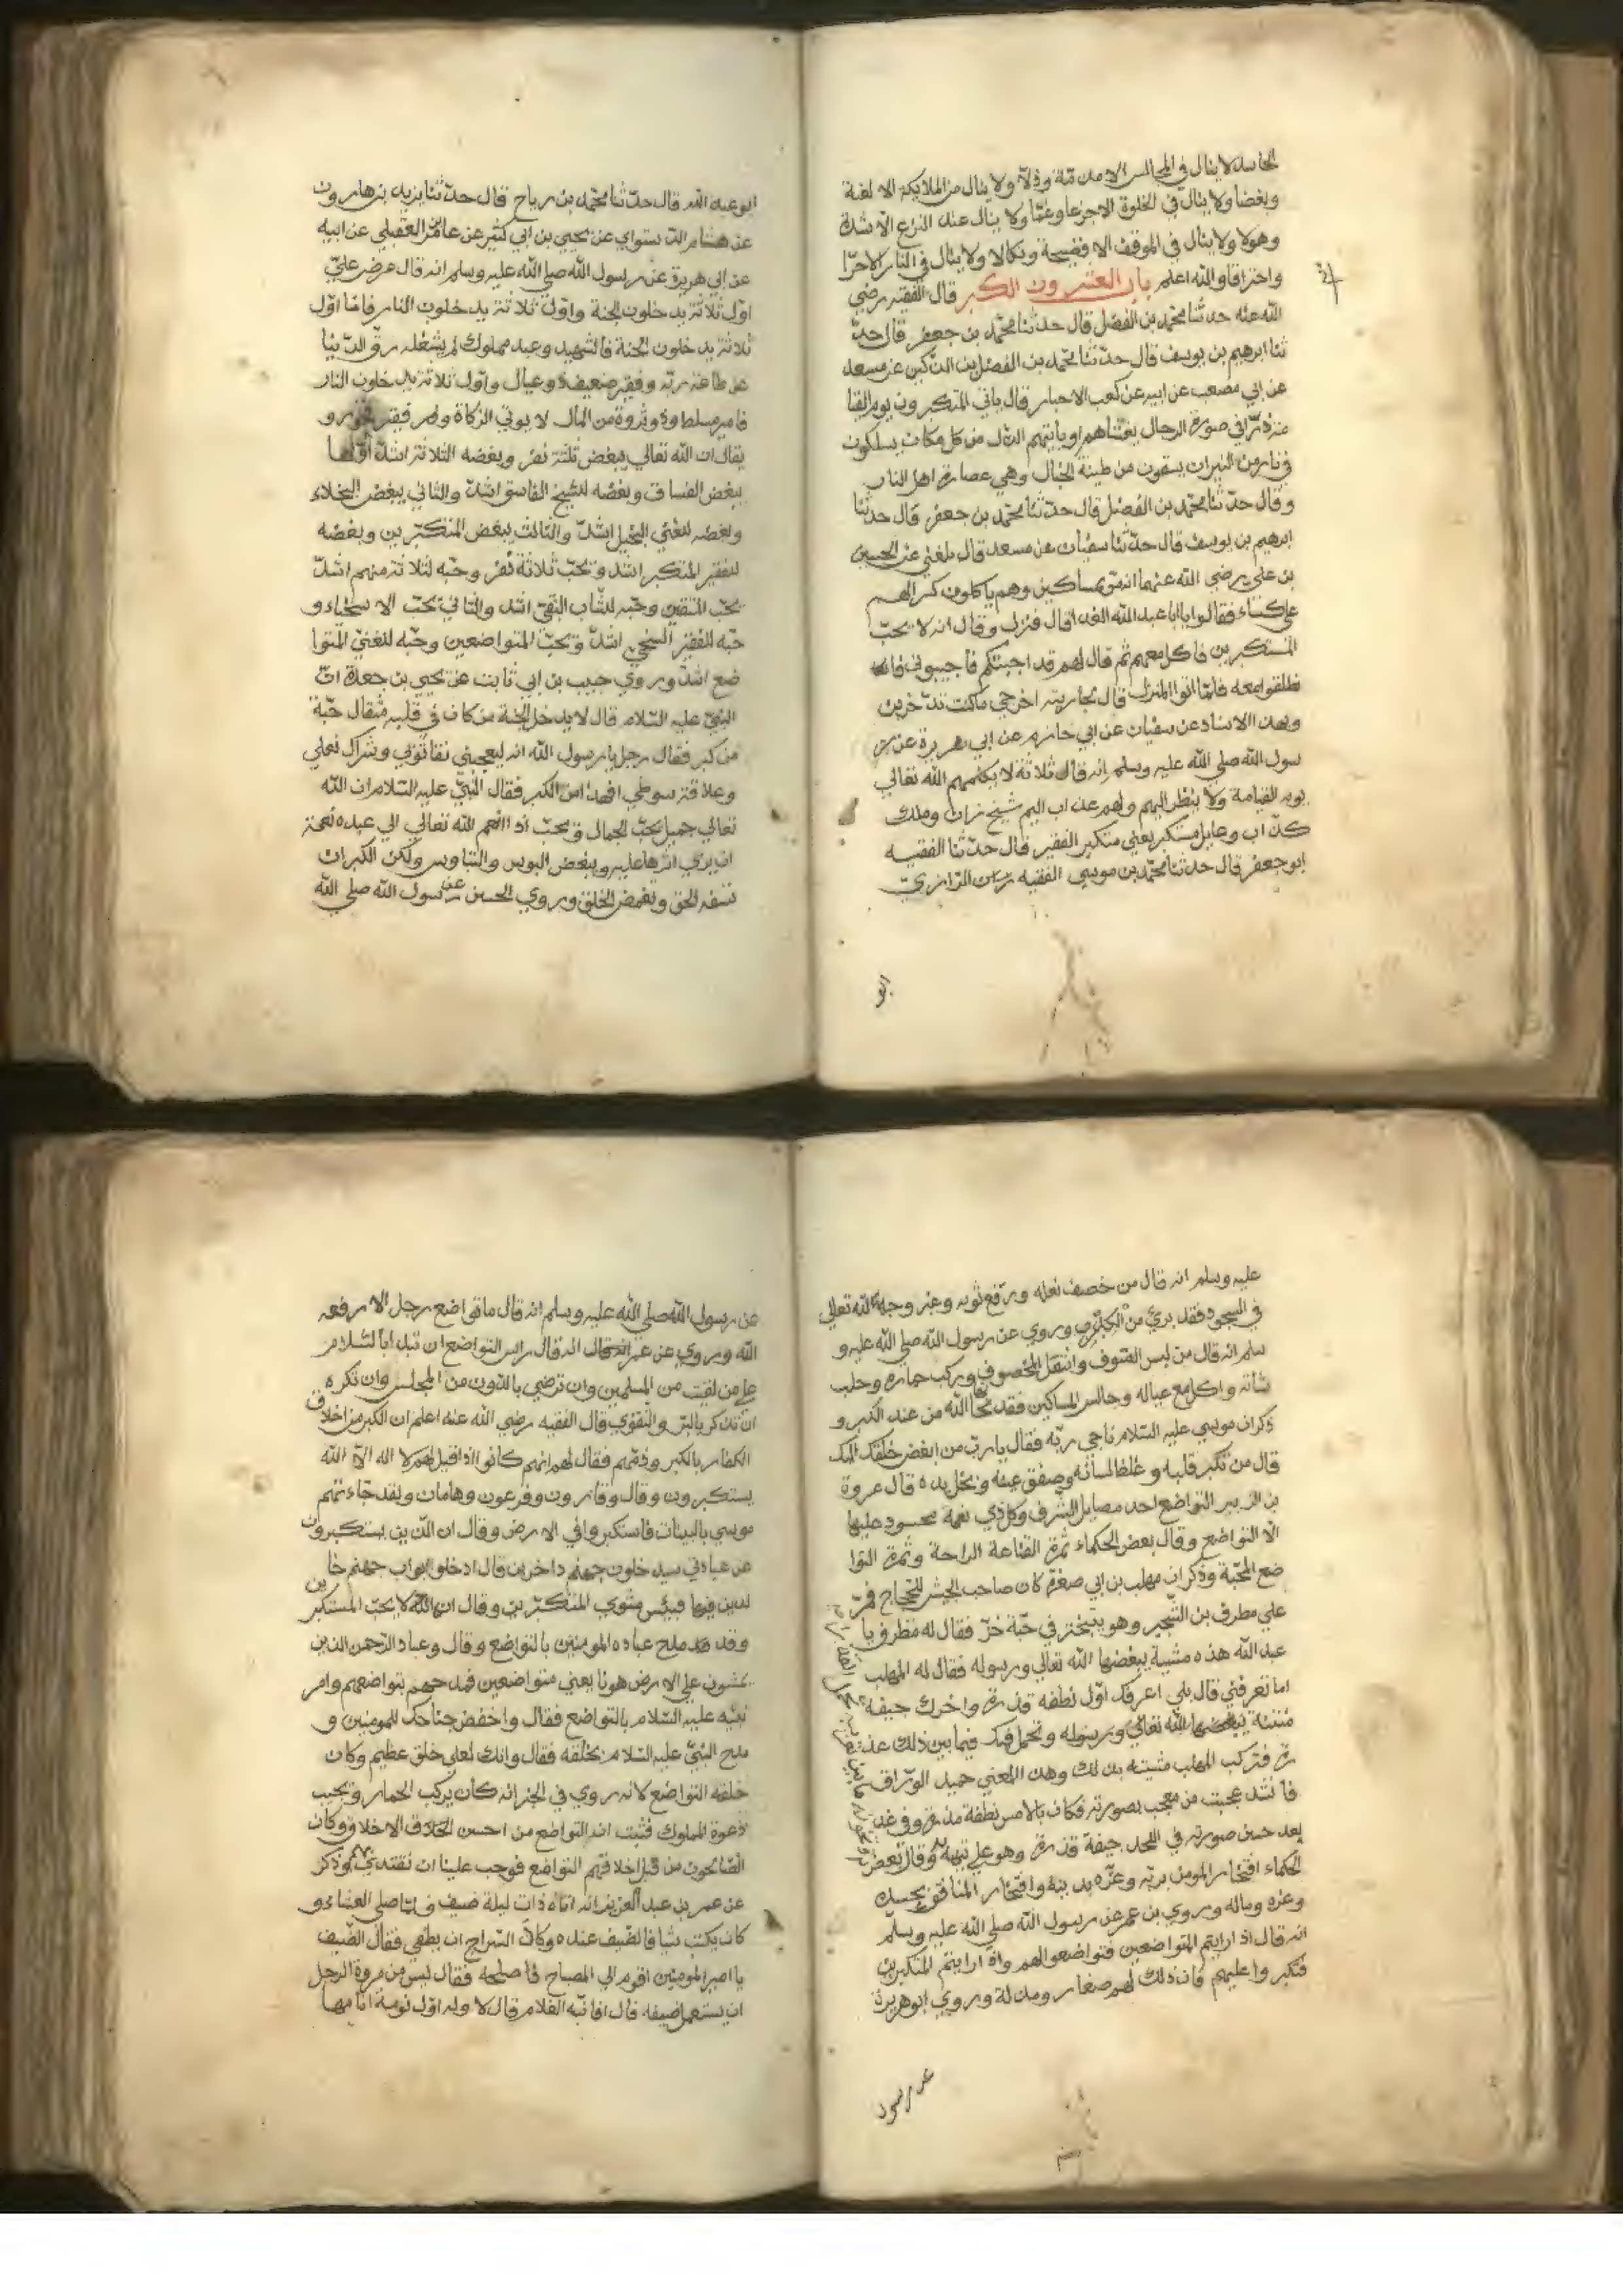 الحاسد لا ينال في المجالس الا مذمة وذلا ولا ينال من الملايكة الا لعنة
وبغضا ولا ينال في الخلوة الا جزعا وغما ولا ينال عند النزع الا شدة
وهولا ولا ينال في الموقف الا فضيحة ونكالا ولا ينال في النار الا حرّا
واحتراقا والله اعلم باب العشرون الكبر قال الفقيه رضي
الله عنه حدثنا محمّد بن الفضل قال حدثنا محمّد بن جعفر قال حدّ
ثنا ابرهيم بن يوسف قال حدّثنا محمّد بن الفضل بن الدكين عن مسعد
عن ابي مصعب عن ابيه عن كعب الاحبار قال ياتي المتكبرون يوم القيا
مة ذرّا في صورة الرجال يغشاهم او ياتيهم الذل من كل مكان يسلكون
في نار من النيران يسقون من طينة الخبال وهي عصارة اهل النار
وقال حدّثنا محمّد بن الفضل قال حدّثنا محمّد بن جعفر قال حدثنا
ابرهيم بن يوسف قال حدّثنا سفيان عن مسعد قال بلغني عن الحسين
بن علي رضي الله عنهما انه مرّ بمساكين وهم ياكلون كسرا لهم
على كساء فقالوا يا ابا عبد الله الغدا قال فنزل وقال انه لا يحبّ
المستكبرين فاكل معهم ثم قال لهم قد اجبتكم فاجيبوني فا
نطلقوا معه فلمّا اتوا المنزل قال لجاريته اخرجي ما كنت تدّخرين
وبهذا الاسناد عن سفيان عن ابي حازم عن ابي هريرة عن ر
سول الله صلى الله عليه وسلم انه قال ثلاثة لا يكلمهم الله تعالى
يوم القيامة ولا ينظر اليهم ولهم عذاب اليم شيخ زان وملك
كذّاب وعايل مستكبر يعني متكبر الفقير قال حدّثنا الفقيه
ابو جعفر قال حدثنا محمّد بن موسى الفقيه الرّازي
ابو
ابو عبد الله قال حدّثنا محمّد بن رباح قال حدّثنا يزيد بن هارون
عن هشام الدستواي عن يحيى بن ابي كثير عن عامر العقيلي عن ابيه
عن ابي هريرة عن رسول الله صلى الله عليه وسلم انه قال عرض عليّ
اوّل ثلاثة يدخلون الجنة واوّل ثلاثة يدخلون النار فامّا اوّل
ثلاثة يدخلون الجنة فالشهيد وعبد مملوك لم يشغله رقّ الدّنيا
عن طاعة ربّه وفقير ضعيف ذو عيال واوّل ثلاثة يدخلون النار
فامير مسلط وذو ثروة من المال لا يوتي الزكاة وفقير فخور و
يقال ان الله تعالى يبغض ثلثة نفر وبغضه لثلاثة اشدّ اوّلها
يبغض الفساق وبغضه للشيخ الفاسق اشدّ والثاني يبغض البخلاء
وبغضه للغني البخيل اشدّ والثالث يبغض المتكبّرين وبغضه
للفقير المتكبر اشد ويحبّ ثلاثة نفر وحبّه لثلاثة منهم اشدّ
يحبّ المتقين وحبّه للشاب التقيّ اشد والثاني يحبّ الاسخياء و
حبّه للفقير السخيّ اشدّ ويحبّ المتواضعين وحبّه للغنيّ المتوا
ضع اشدّ وروي حبيب بن ابي ثابت عن يحيى بن جعدة انّ
النبيّ عليه السّلام قال لا يدخل الجنة من كان في قلبه مثقال حبّة
من كبر فقال رجل يا رسول الله انه ليعجبني نقا ثوبي وشراك نعلي
وعلاقة سوطي افهذا من الكبر فقال النّبيّ عليه السّلام ان الله
تعالى جميل يحبّ الجمال ويحبّ اذا انعم الله تعالى الى عبده نعمة
ان يرى اثرها عليه ويبغض البوس والتباوس ولكن الكبر ان
تسفه الحق وتغمض الخلق وروي الحسن عن رسول الله صلى الله
عليه وسلم انه قال من خصف نعله ورقّع ثوبه وعفر وجهه لله تعالى
في السجود فقد بريّ من الكبر وروي عن رسول الله صلى الله عليه و
سلم انه قال من لبس الصوف وانتعل المخصوف وركب حماره وحلب
شاته واكل مع عياله وجالس المساكين فقد نحّا الله من عند الكبر و
ذكر ان موسى عليه السّلام ناجى ربّه فقال يا ربّ من ابغض خلقك اليك
قال من تكبر قلبه وغلظ لسانه وصفق عينه وبخل يده قال عروة
بن الزبير التواضع احد مصايد الشرف وكل ذي نعمة محسود عليها
الّا التواضع وقال بعض الحكماء ثمرة القناعة الراحة وثمرة التوا
ضع المحبّة وذكر ان مهلب بن ابي صفرة كان صاحب الجيش للحجاج فمرّ
على مطرف بن الشّخير وهو يتبختر في جبّة خزّ فقال له مطرف يا
عبد الله هذه مشية يبغضها الله تعالى ورسوله فقال له المهلب
اما تعرفني قال بلى اعرفك اوّل نطفة قذرة واخرك جيفة
منتنة يبغضها الله تعالى ورسوله وتحمل فيك فيما بين ذلك عذ
رة فترك المهلب مشيته بذلك وهذا المعنى حميد الورّاق
فانشد عجبت من معجب بصورته وكان بالامس نطفة مذرة وفي غد
بعد حسن صورته في اللحد جيفة قذرة وهو على تيهه وقال بعض
الحكماء افتخار المومن بربّه وعزّه بدينه وافتخار المنافق بحسبه
وعزه وماله وروي بن عمر عن رسول الله صلى الله عليه وسلّم
انه قال اذا رايتم المتواضعين فتواضعوا لهم واذا رايتم المتكبرين
فتكبروا عليهم فان ذلك لهم صغار ومذلة وروي ابو هريرة
عن رسول
عن رسول الله صلى الله عليه وسلم انه قال ما تواضع رجل الا رفعه
الله وروي عن عمر انه قال راس التواضع ان تبدا بالسّلام
على من لقيت من المسلمين وان ترضى بالدّون من المجلس وان تكره
ان تذكر بالبرّ والتقوى قال الفقيه رضي الله عنه اعلم ان الكبر من اخلاق
الكفار بالكبر وذمّهم فقال لهم انهم كانوا اذا قيل لهم لا اله الّا الله
يستكبرون وقال وقارون وفرعون وهامان ولقد جاءتهم
موسى بالبينات فاستكبروا في الارض وقال ان الذين يستكبرون
عن عبادتي سيدخلون جهنم داخرين قال ادخلوا ابواب جهنم خا
لدين فيها فبئس مثوى المتكبّرين وقال ان الله لا يحبّ المستكبرين
وقد مدح عباده المومنين بالتواضع وقال وعباد الرّحمن الذين
يمشون على الارض هونا يعني متواضعين فمدحهم بتواضعهم وامر
نبيّه عليه السّلام بالتواضع فقال واخفض جناحك للمومنين و
مدح النبيّ عليه السّلام بخلقه فقال وانك لعلى خلق عظيم وكان
خلقه التواضع لانه روي في الخبر انه كان يركب الحمار ويجيب
دعوة المملوك فثبت انه التواضع من احسن الاخلاق وكان
الصّالحون من قبل اخلاقهم التواضع فوجب علينا ان نقتدي بهم وذكر
عن عمر بن عبد العزيز انه اتاه ذات ليلة ضيف فلمّا صلى العشاء و
كان يكتب شيا فالضيف عنده وكاد السّراج ان يطفي فقال الضّيف
يا امير المومنين اقوم الى المصباح فاصلحه فقال ليس من مروة الرجل
ان يستعمل ضيفه قال افانبّه الغلام قال لا وله اوّل نومة نامها